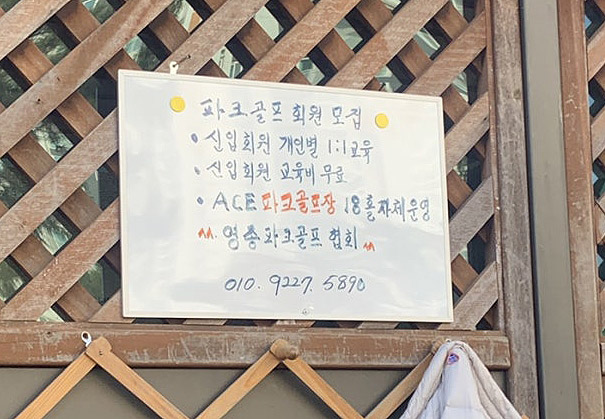 파크골프 회원 모집
• 신입회원 개인별 1:1교육
• 신입회원 교육비 무료
• ACE 파크골프장 18홀 자체운영
영종파크골프 협회
010. 9227. 5890